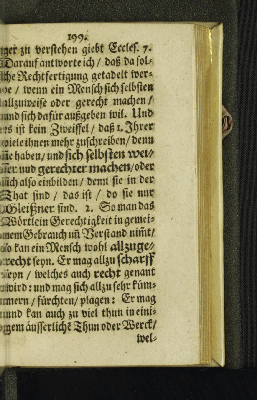 199.
ger zu verstehen giebt Eccles. 7.
Darauf antworte ich / daß da sol-
che Rechtfertigung getadelt wer-
de / wenn ein Mensch sich selbsten
allzuweise oder gerecht machen /
und sich dafür außgeben wil. Und
es ist kein Zweiffel / daß 1. Ihrer
viele ihnen mehr zuschreiben / denn
sie haben / und sich selbsten wei-
ser und gerechter machen / oder
sich also einbilden / denn sie in der
That sind / das ist / do sie nur
Gleißner sind. 2. So man das
Wörtlein Gerechtigkeit in gemei-
nem Gebrauch uñ Verstand nimt /
so kan ein Mensch wohl allzuge-
recht seyn. Er mag allzu scharff
seyn / welches auch recht genant
wird: und mag sich allzu sehr küm-
mern / fürchten / plagen: Er mag
und kan auch zu viel thun in eini-
gem äusserlichẽ Thun oder Werck /
wel-